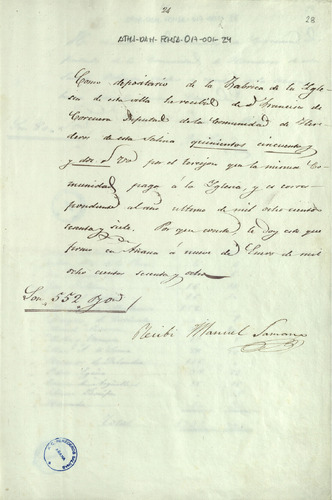 21
28
ATHA-DAH-FCHSA-017-001-24
Como depositario de la Fabrica de la Ygle-
sia de esta villa he recibido de Dn Francisco de
Corcuera Diputado de la Comunidad de Here-
deros de esta Salina quinientos cincuenta
y dos rs Von por el torrejon que la misma Co-
munidad paga á la Yglesia, y es corres-
pondiente al año ultimo de mil ocho cientos
sesenta y siete. Por que conste le doy este que
firmo en Añana á nueve de Enero de mil
ocho cientos sesenta y ocho
Son 552 rs von
Recibi Manuel Samano